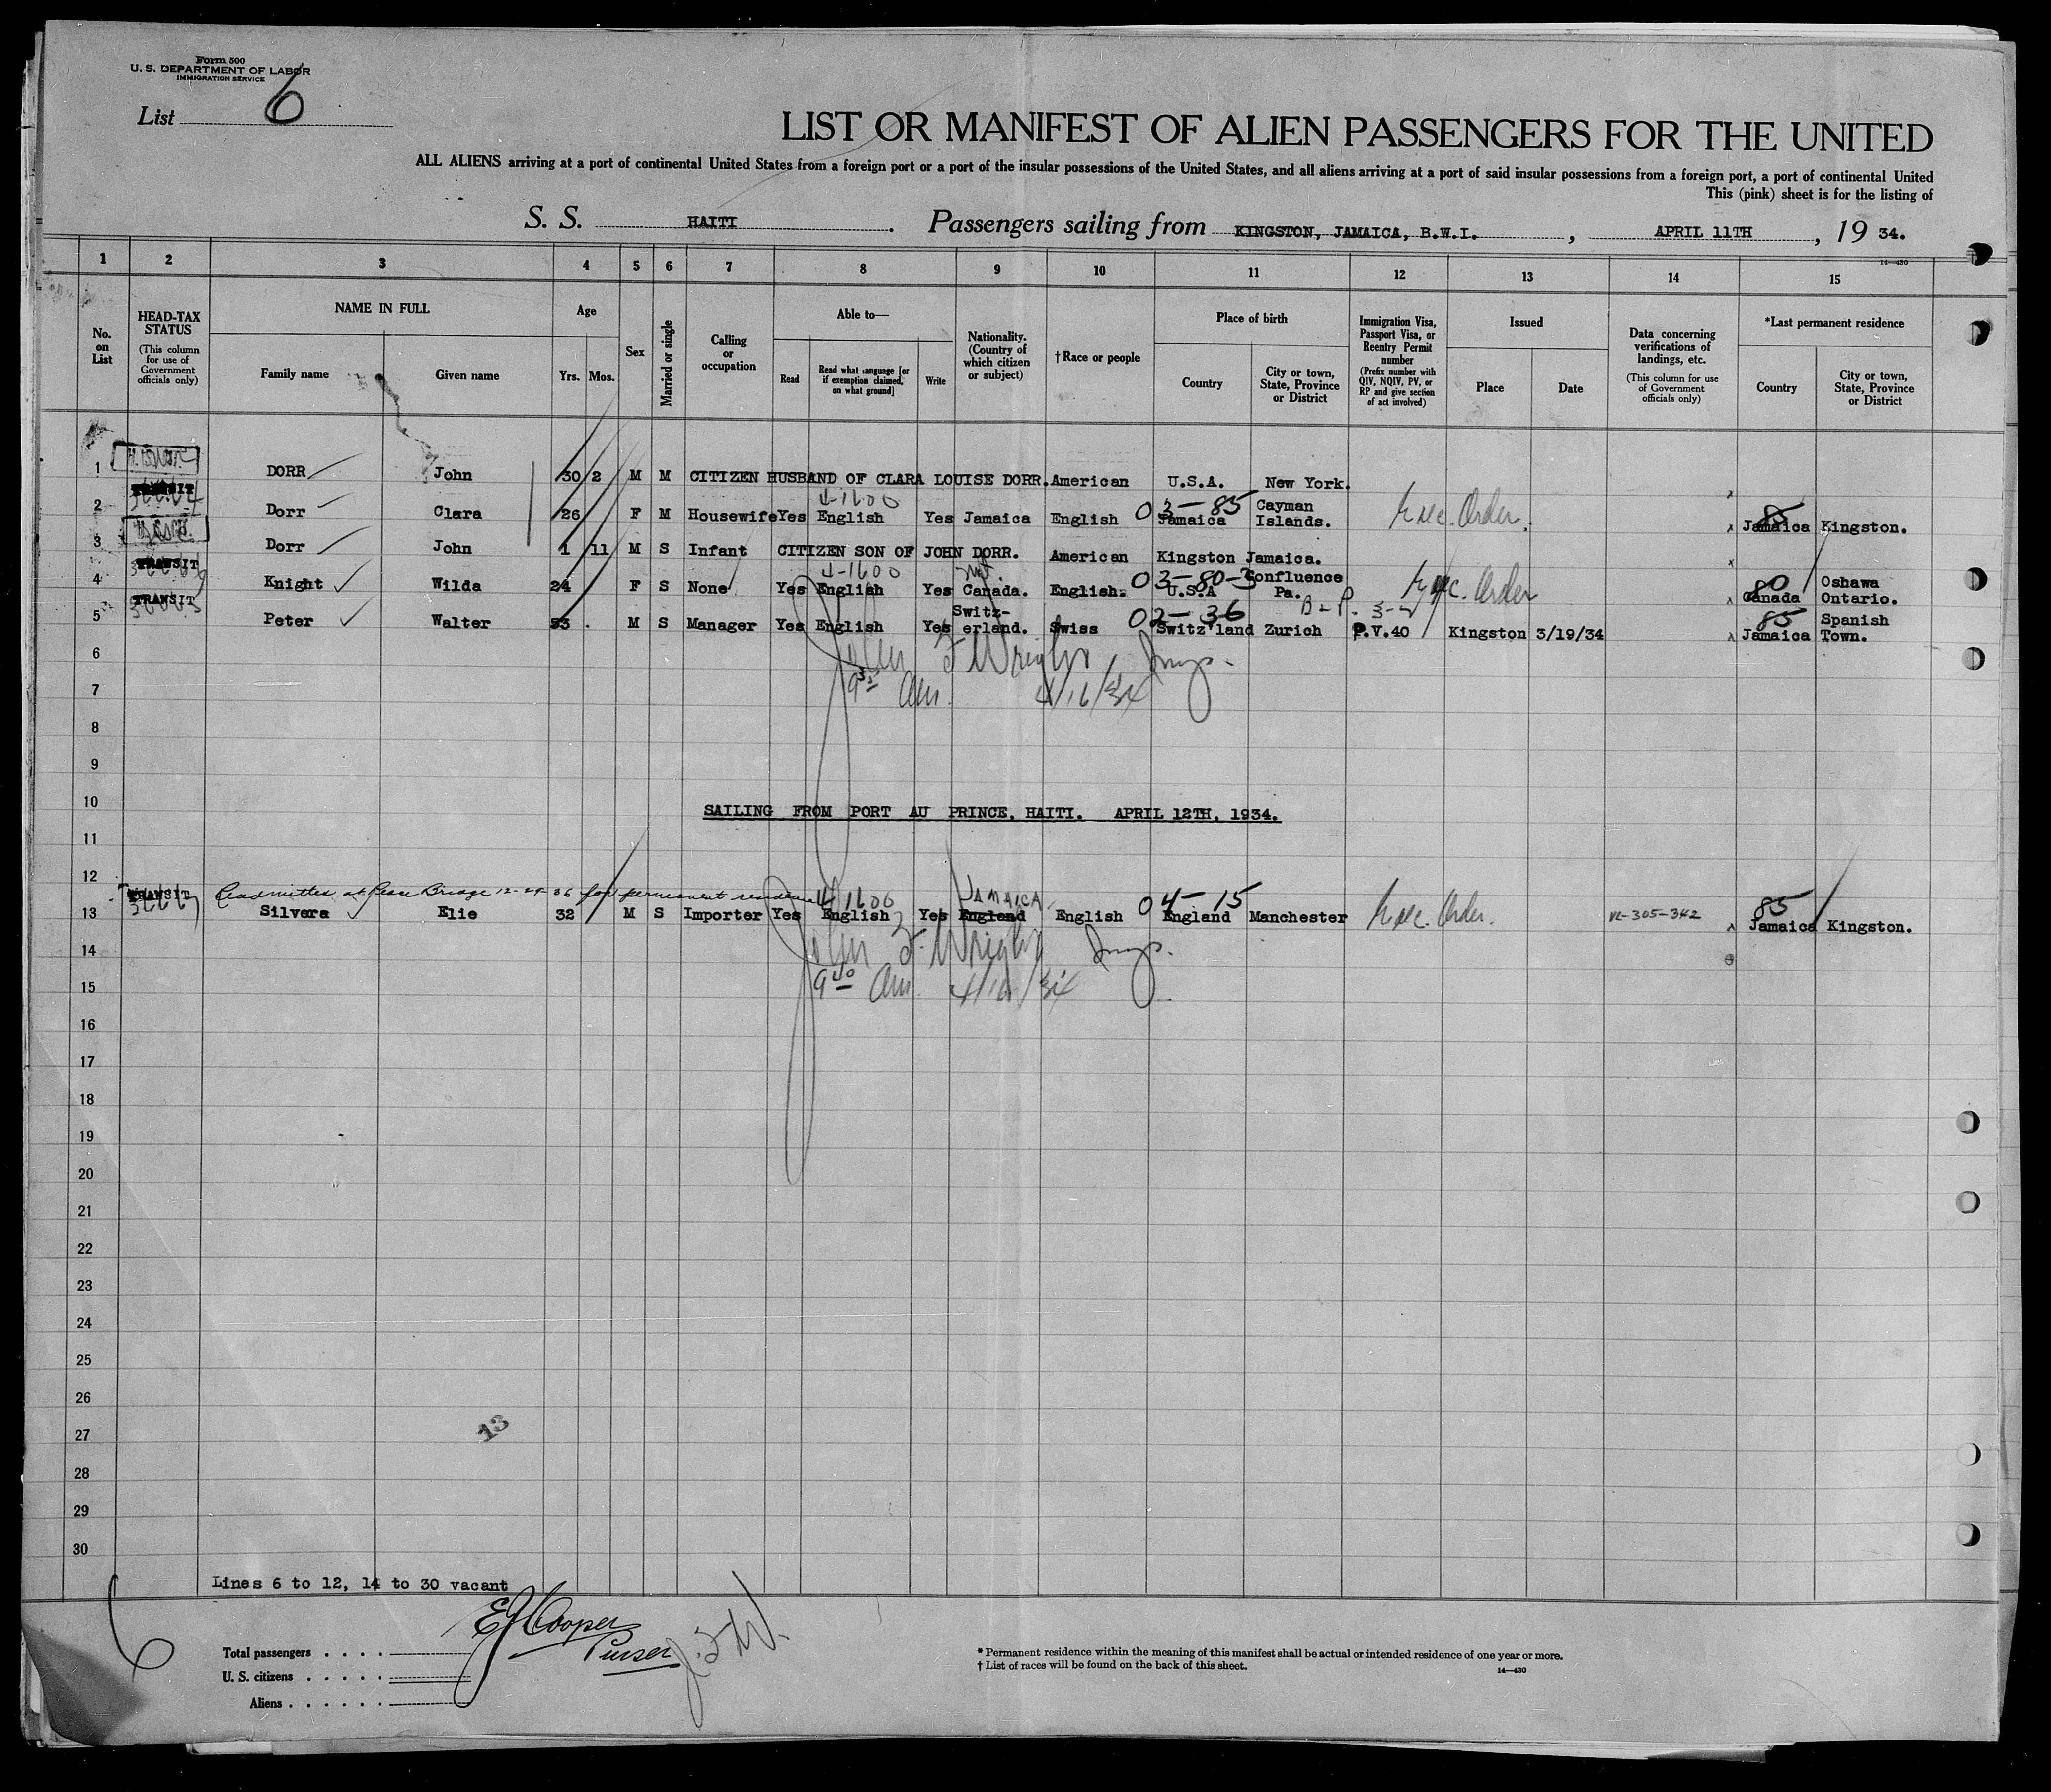 Form 500
U. S. DEPARTMENT OF LABOR
IMMIGRATION SERVICE
List 6
LIST OR MANIFEST OF ALIEN PASSENGERS FOR THE UNITED
ALL ALIENS arriving at a port of continental United States from a foreign port or a port of the insular possessions of the United States, and all aliens arriving at a port of said insular possessions from a foreign port, a port of continental United
This (pink) sheet is for the listing of
S. S. HAITI. Passengers sailing from KINGSTON, JAMAICA, B.W.I., APRIL 11TH, 19 34.
14—430
1 2 3 4 5 6 7 8 9 10 11 12 13 14 15
No. on List
HEAD-TAX STATUS
(This column for use of Government officials only)
NAME IN FULL
Family name
Given name
Age
Yrs. Mos.
Sex
Married or single
Calling or occupation
Able to—
Read
Read what language [or if exemption claimed, on what ground]
Write
Nationality. (Country of which citizen or subject)
†Race or people
Place of birth
Country
City or town, State, Province or District
Immigration Visa, Passport Visa, or Reentry Permit number
(Prefix number with QIV, NQIV, PV, or RP and give section of act involved)
Issued
Place
Date
Data concerning verifications of landings, etc.
(This column for use of Government officials only)
*Last permanent residence
Country
City or town, State, Province or District
1 DORR John 30 2 M M CITIZEN HUSBAND OF CLARA LOUISE DORR. American U.S.A. New York.
TRANSIT
4-1600
03-85
2 Dorr Clara 26 F M Housewife Yes English Yes Jamaica English Jamaica Cayman Islands. Exec. Order. 85 Jamaica Kingston.
3 Dorr John 1 11 M S Infant CITIZEN SON OF JOHN DORR. American Kingston Jamaica.
TRANSIT
4-1600
03-80-3
4 Knight Wilda 24 F S None Yes English Yes Canada. English. U.S.A Confluence Pa. Exec. Order 80 Canada Oshawa Ontario.
TRANSIT
02-36
5 Peter Walter 53 M S Manager Yes English Yes Switz-erland. Swiss Switz'land Zurich P.V.40 Kingston 3/19/34 85 Jamaica Spanish Town.
6 John F Wright Insp.
7 am. 4/16/34
8
9
10 SAILING FROM PORT AU PRINCE, HAITI. APRIL 12TH, 1934.
11
12
TRANSIT Readmitted at Peace Bridge 12-24-36 for permanent residence
4 1600 JAMAICA. 04-15
13 Silvera Elie 32 M S Importer Yes English Yes England English England Manchester Exec. Order. VL-305-342 85 Jamaica Kingston.
14 John F. Wright Insp.
15 9 40 am. 4/16/34
16
17
18
19
20
21
22
23
24
25
26
13
27
28
29
30
Lines 6 to 12, 14 to 30 vacant
6
E J Cooper
Purser
J.F.W.
Total passengers . . . .
U. S. citizens . . . . .
Aliens . . . . . .
* Permanent residence within the meaning of this manifest shall be actual or intended residence of one year or more.
† List of races will be found on the back of this sheet.
14—430